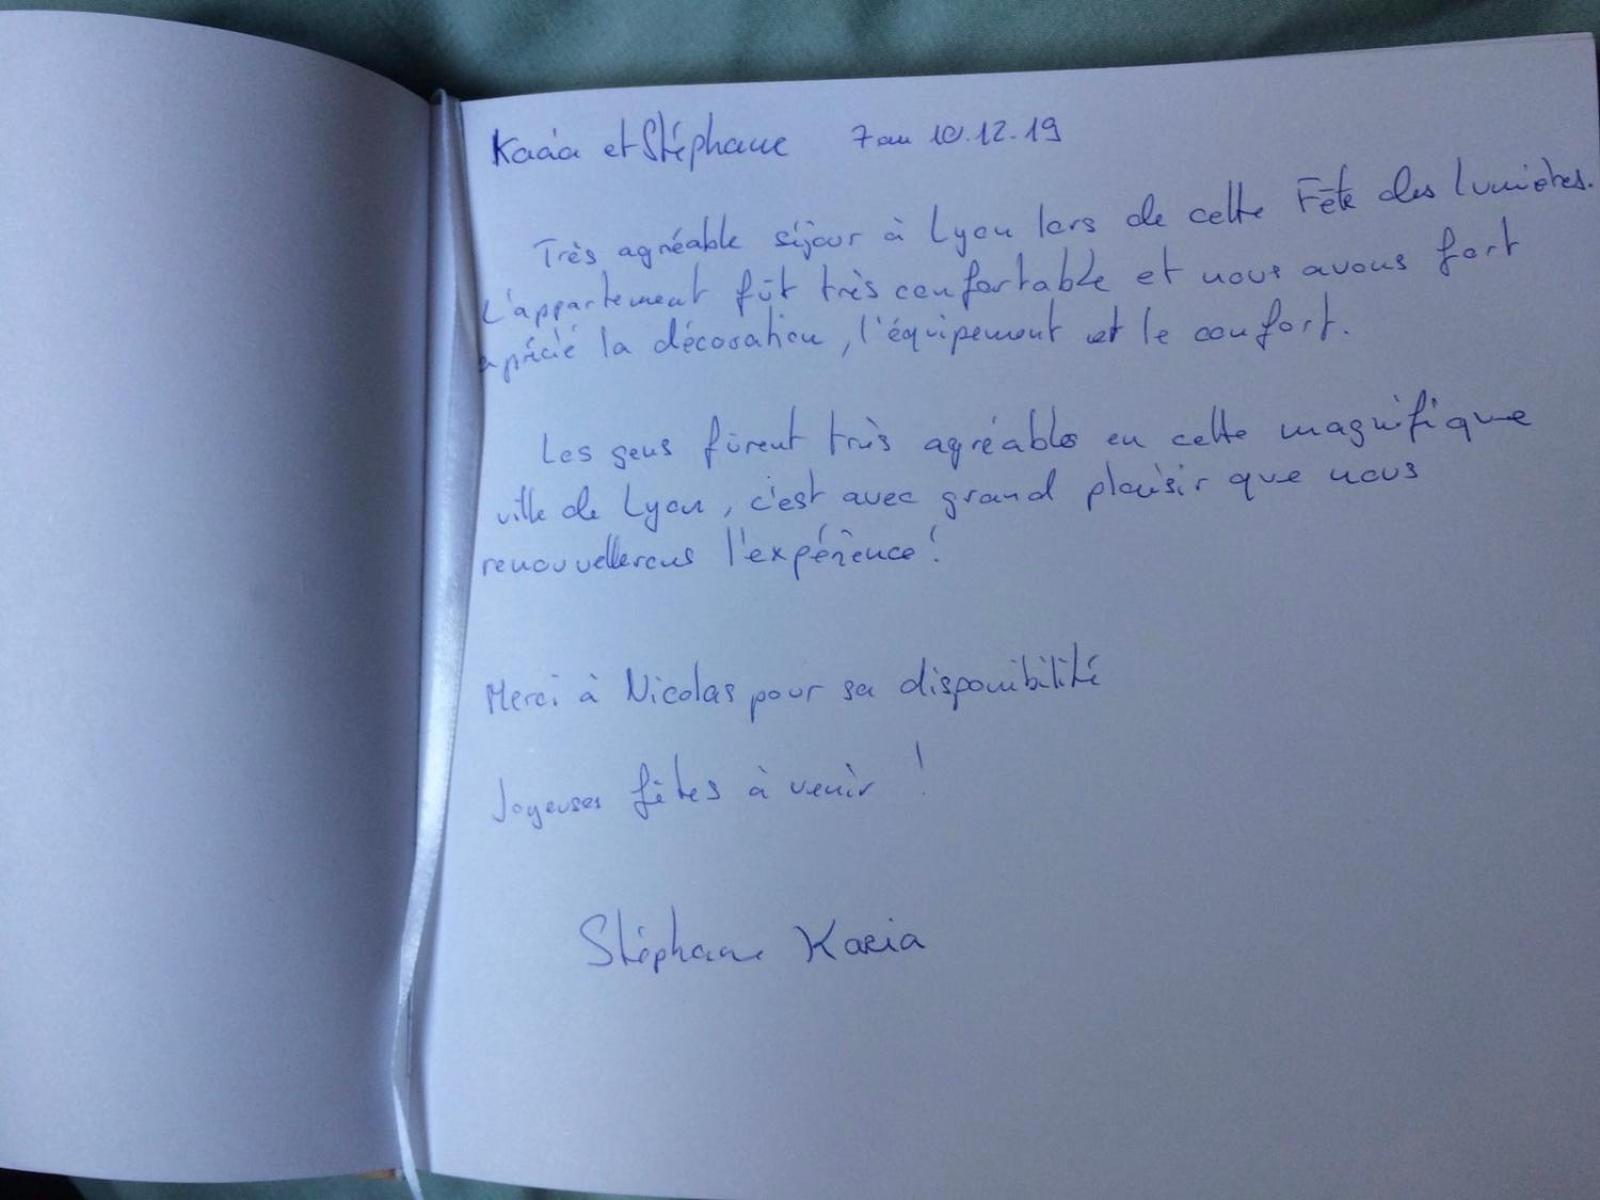 et Stéphane 7 au 10.12.19
Très agréable séjour à Lyon lors de cette Fête des lumières.
L'appartement fût très confortable et nous avons fort
aprécié la décoration, l'équipement et le confort.
Les gens fûrent très agréables en cette magnifique
ville de Lyon, c'est avec grand plaisir que nous
renouvellerons l'expérience !
Merci à Nicolas pour sa disponibilité
Joyeuses fêtes à venir !
Stéphane